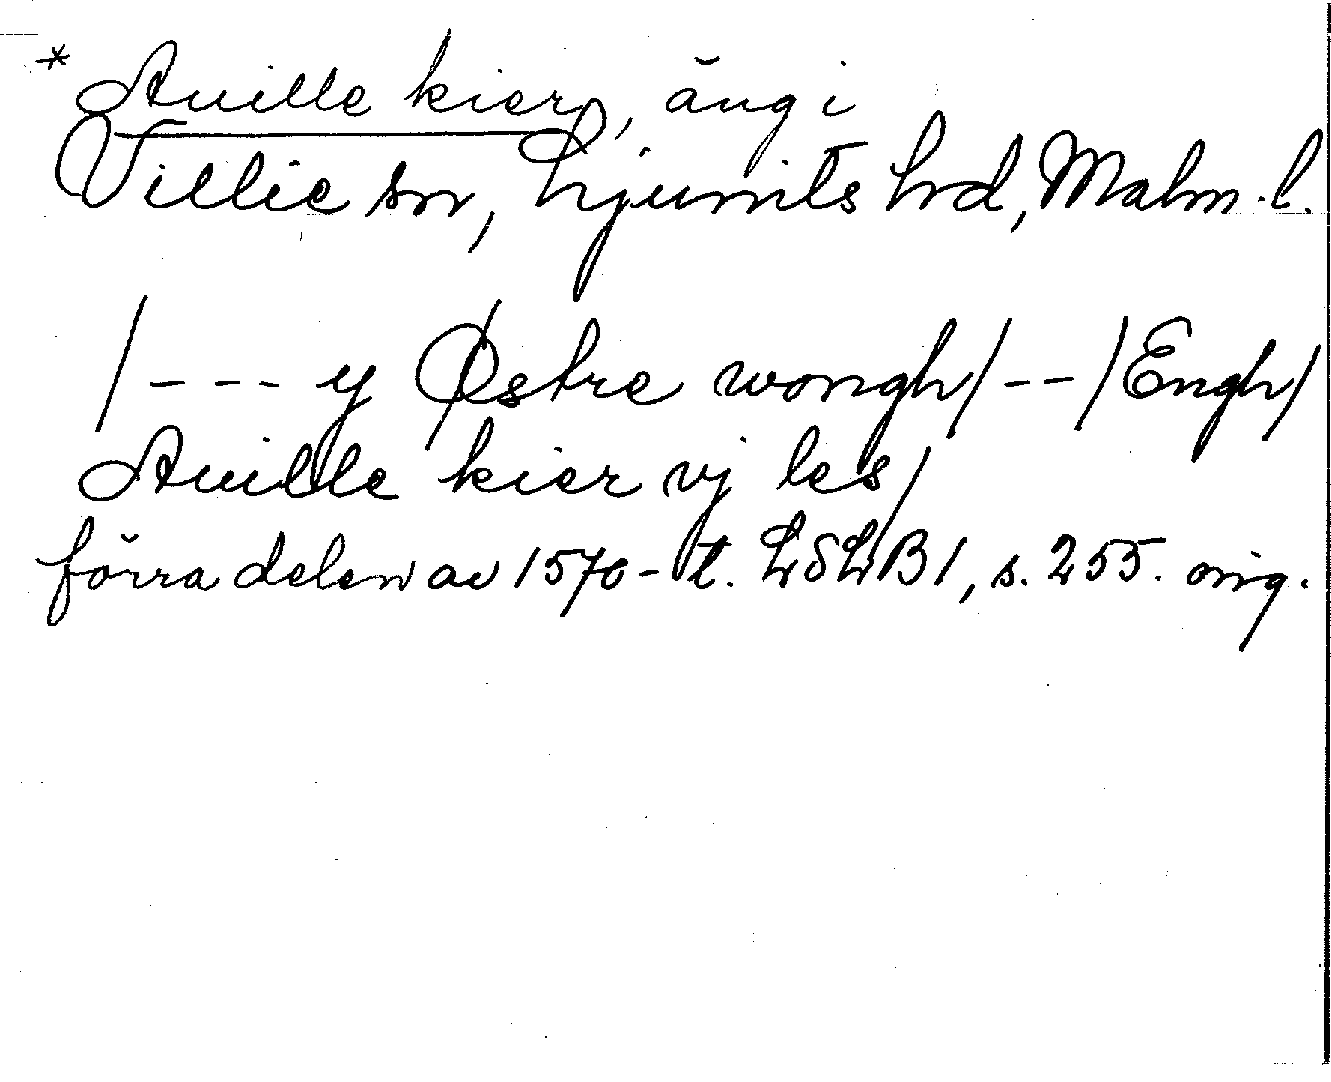 * Auille kier, äng i
Villie sn, Ljunits hrd, Malm. l.
/--- y Østre wongh/--/Engh/
Auille kier vj les/
förra delen av 1570-t. LSLB1, s. 255. orig.